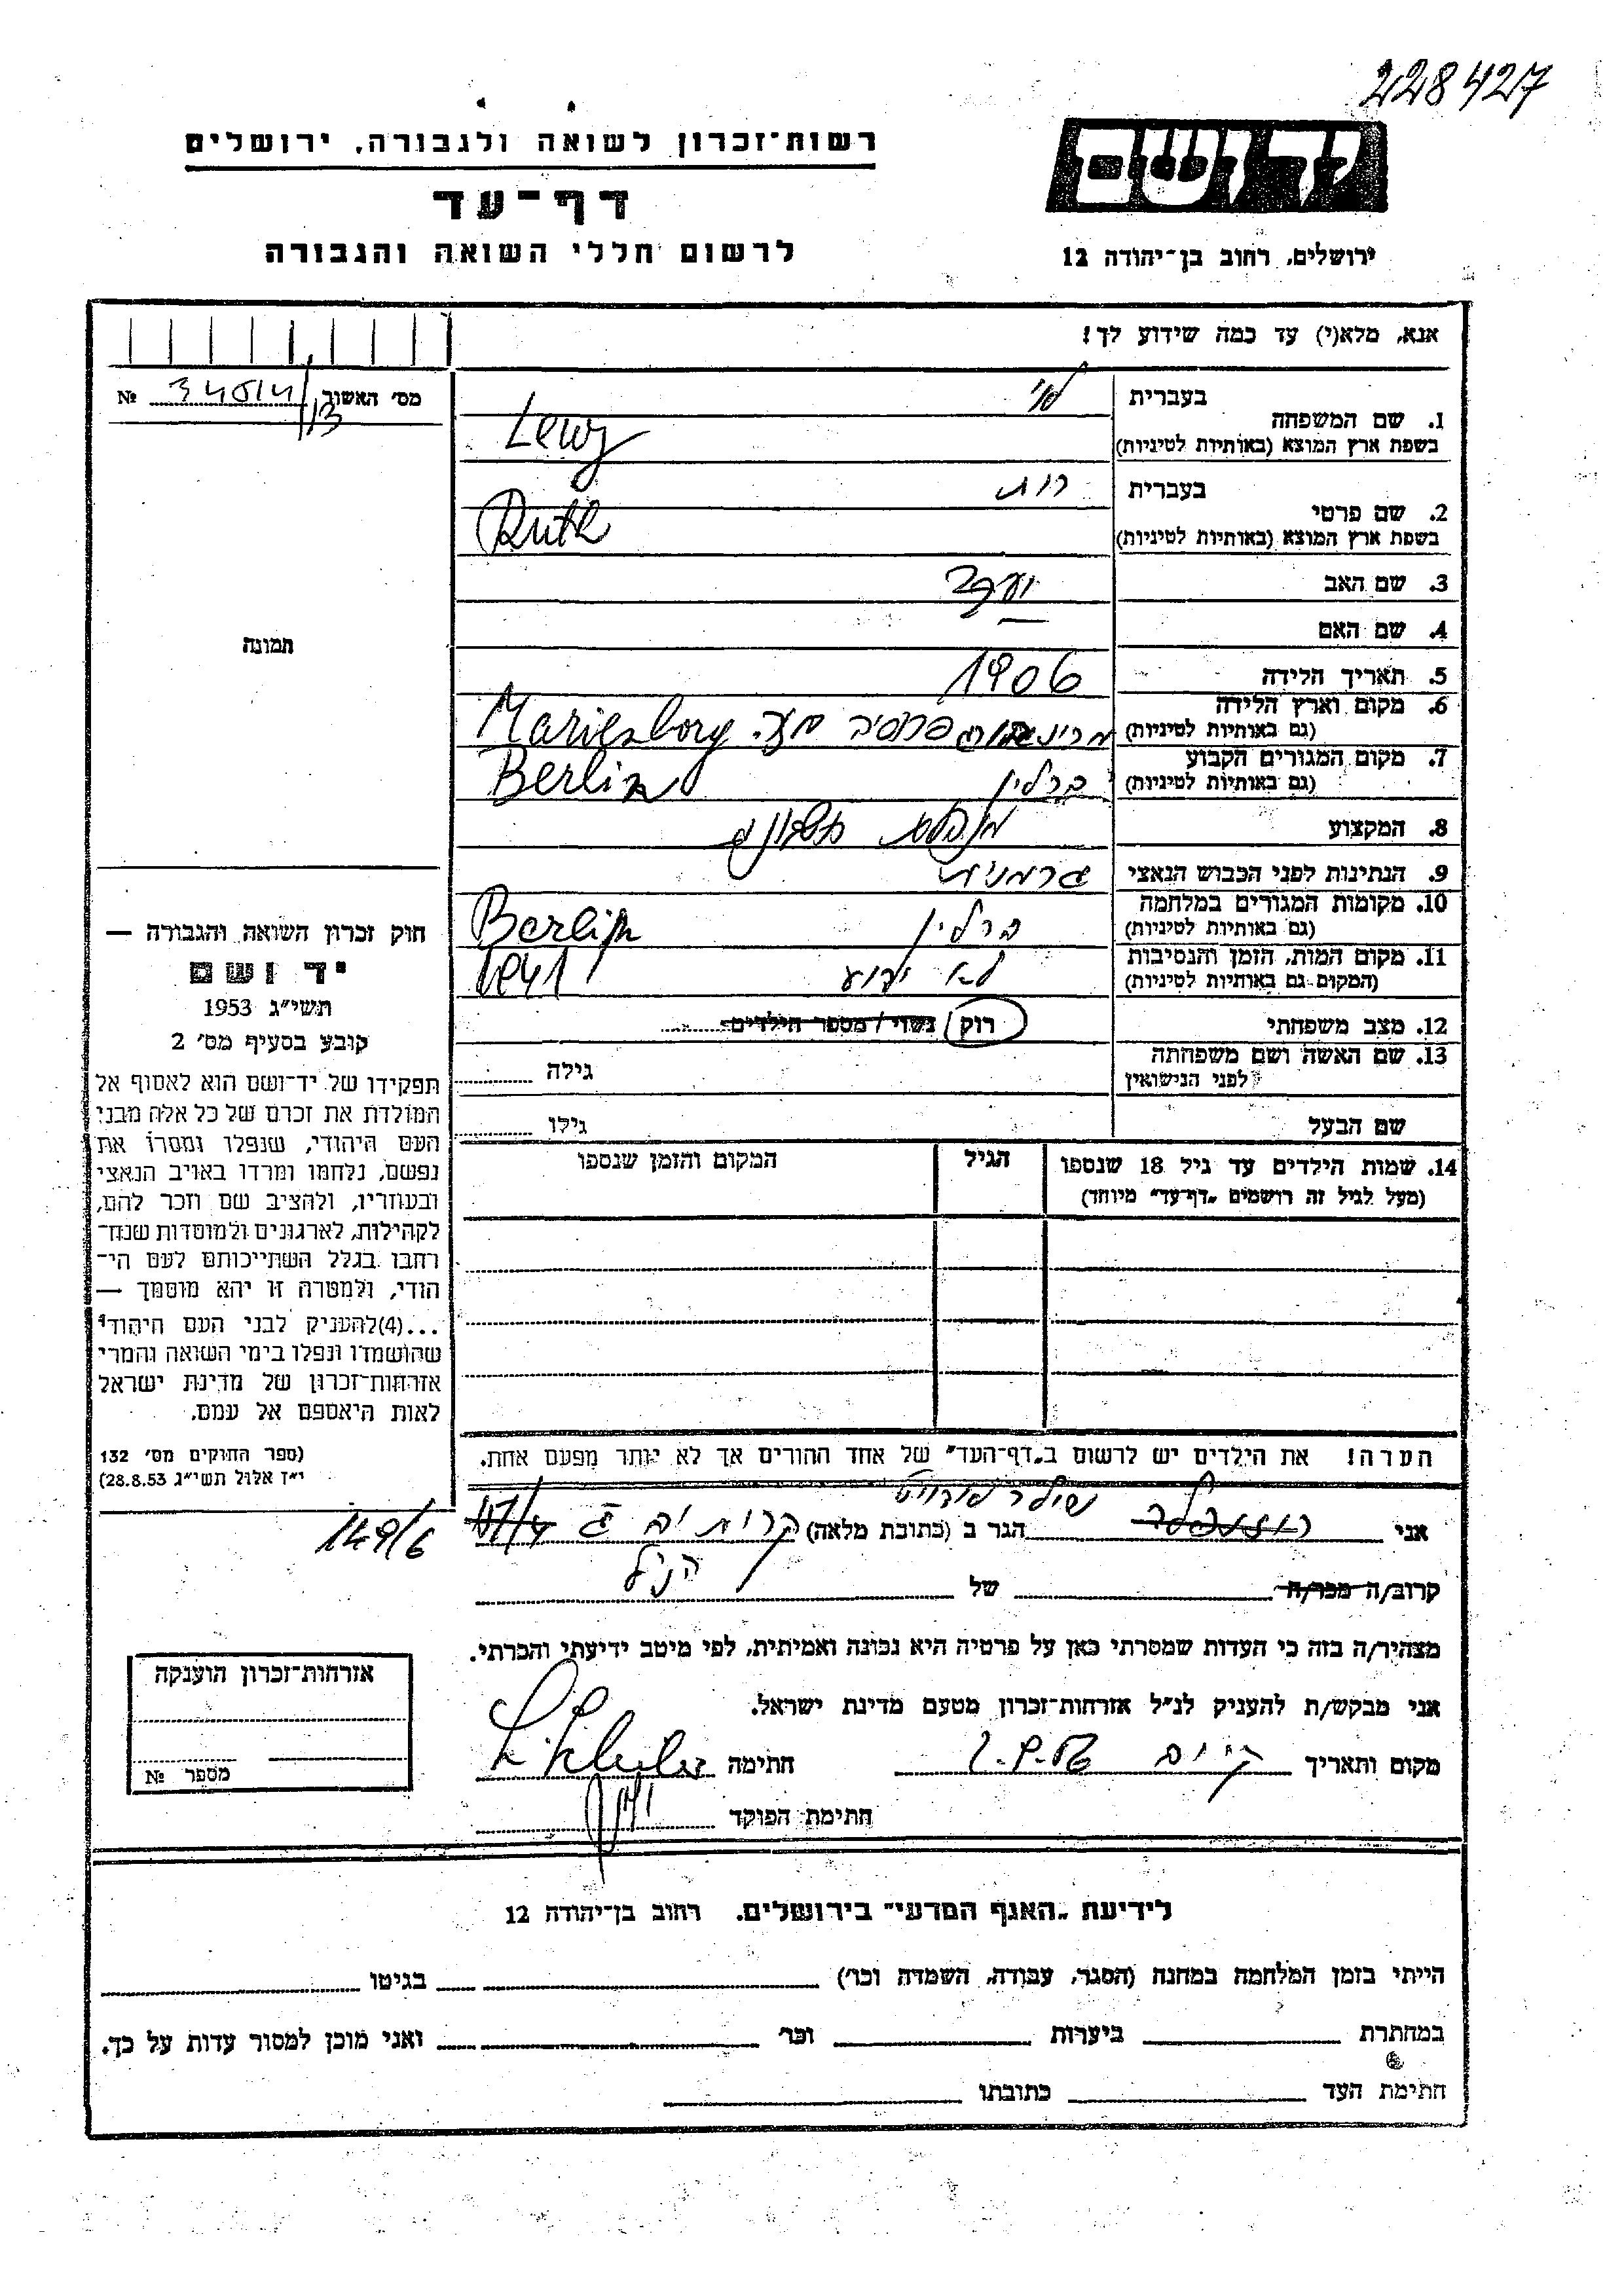 228427
רשות-זכרון לשואה ולגבורה, ירושלים
דף-עד
לרשום חללי השואה והגבורה
יד ושם
ירושלים, רחוב בן-יהודה 12
אנא, מלא(י) עד כמה שידוע לך!
מס׳ האשור № 34514/13
1. שם המשפחה בעברית לוי
בשפת ארץ המוצא (באותיות לטיניות) Lewy
2. שם פרטי בעברית רות
בשפת ארץ המוצא (באותיות לטיניות) Ruth
3. שם האב יעקב
4. שם האם —
5. תאריך הלידה 1906
6. מקום וארץ הלידה (גם באותיות לטיניות) פרוסיה מע. Marienborg
7. מקום המגורים הקבוע (גם באותיות לטיניות) ברלין Berlin
8. המקצוע
9. הנתינות לפני הכבוש הנאצי גרמנית
10. מקומות המגורים במלחמה (גם באותיות לטיניות) ברלין Berlin
11. מקום המות, הזמן והנסיבות (המקום גם באותיות לטיניות) לא ידוע 1941
12. מצב משפחתי רוק / נשוי / מספר הילדים
13. שם האשה ושם משפחתה לפני הנישואין גילה
שם הבעל גילו
14. שמות הילדים עד גיל 18 שנספו הגיל המקום והזמן שנספו
(מעל לגיל זה רושמים „דף-עד״ מיוחד)
תמונה
חוק זכרון השואה והגבורה —
יד ושם
תשי״ג 1953
קובע בסעיף מס׳ 2
תפקידו של יד-ושם הוא לאסוף אל
המולדת את זכרם של כל אלה מבני
העם היהודי, שנפלו ומסרו את
נפשם, נלחמו ומרדו באויב הנאצי
ובעוזריו, ולהציב שם וזכר להם,
לקהילות, לארגונים ולמוסדות שנח-
רבו בגלל השתייכותם לעם הי-
הודי, ולמטרה זו יהא מוסמך —
...(4)להעניק לבני העם היהודי
שהושמדו ונפלו בימי השואה והמרי
אזרחות-זכרון של מדינת ישראל
לאות היאספם אל עמם.
(ספר החוקים מס׳ 132
י״ז אלול תשי״ג 28.8.53)
הערה! את הילדים יש לרשום ב„דף-העד״ של אחד ההורים אך לא יותר מפעם אחת.
אני שילר הגר ב (כתובת מלאה) קרית ים ג 149/6
קרוב/ה מכר/ה של הנ״ל
מצהיר/ה בזה כי העדות שמסרתי כאן על פרטיה היא נכונה ואמיתית, לפי מיטב ידיעתי והכרתי.
אני מבקש/ת להעניק לנ״ל אזרחות-זכרון מטעם מדינת ישראל.
מקום ותאריך ק. ים חתימה
חתימת הפוקד
אזרחות-זכרון הוענקה
מספר №
לידיעת „האגף המדעי״ בירושלים. רחוב בן-יהודה 12
הייתי בזמן המלחמה במחנה (הסגר, עבודה, השמדה וכו׳) בגיטו
במחתרת ביערות וכו׳ ואני מוכן למסור עדות על כך.
חתימת העד כתובתו